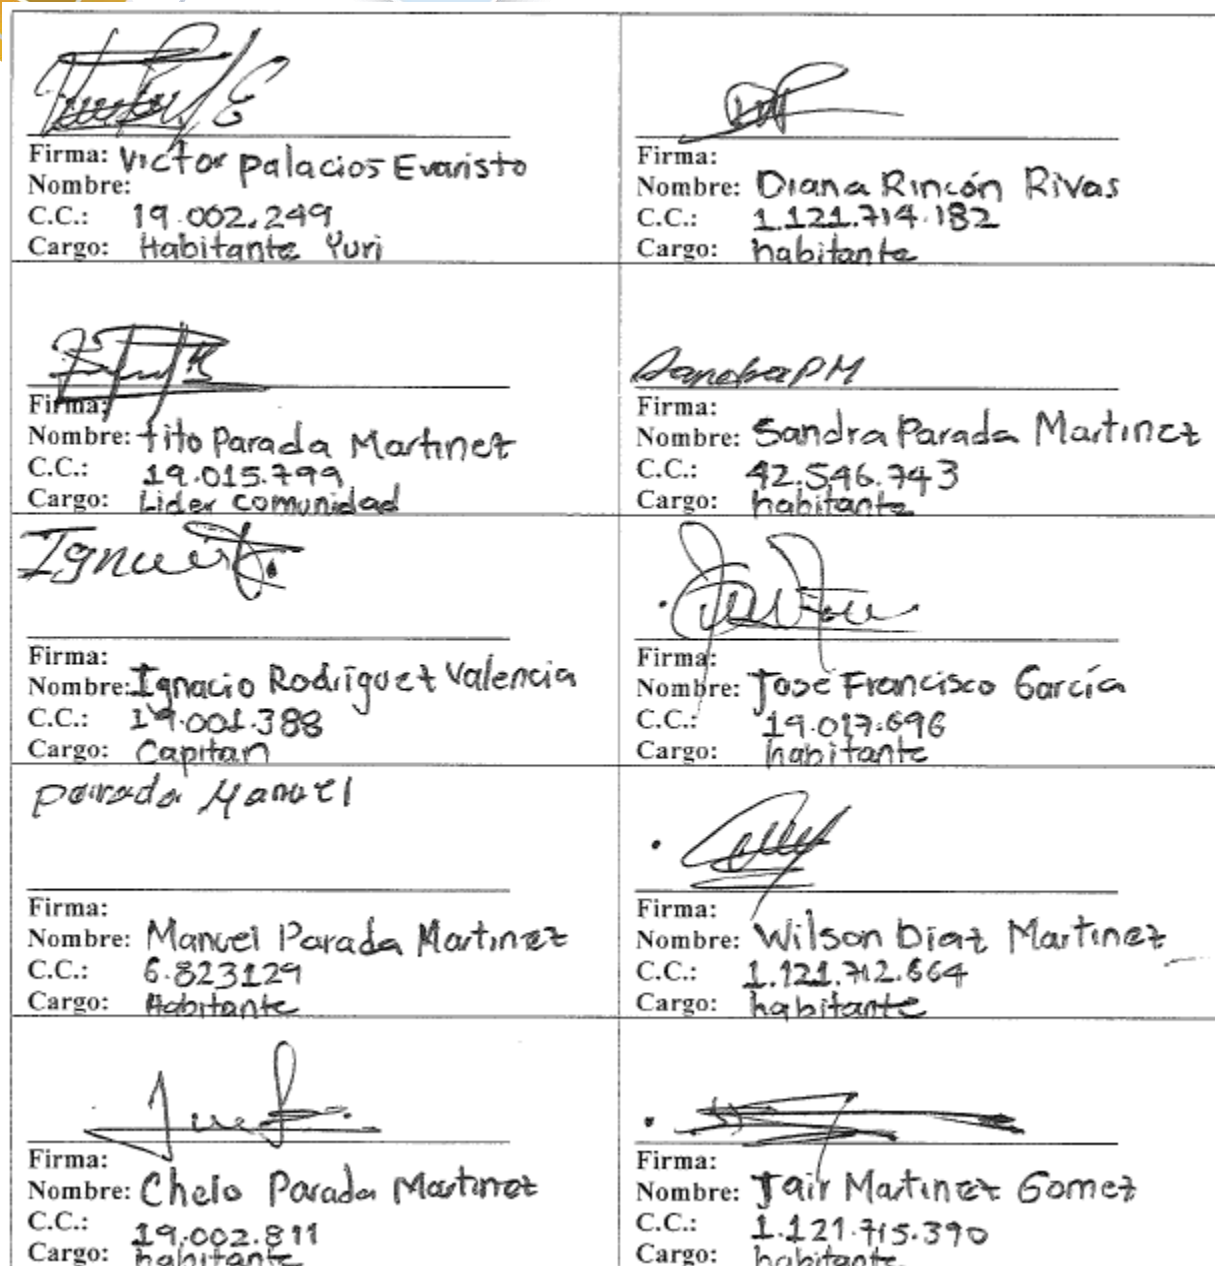 Firma: Victor palacios Evaristo
Nombre:
C.C.: 19.002.249
Cargo: Habitante Yuri
Firma:
Nombre: Diana Rincón Rivas
C.C.: 1.121.714.182
Cargo: habitante
Firma:
Nombre: tito Parada Martinez
C.C.: 19.015.799
Cargo: Lider comunidad
Sandra PM
Firma:
Nombre: Sandra Parada Martinez
C.C.: 42.546.743
Cargo: habitante
Firma:
Nombre: Ignacio Rodríguez Valencia
C.C.: 19.001.388
Cargo: Capitan
Firma:
Nombre: José Francisco García
C.C.: 19.017.696
Cargo: habitante
parada Manuel
Firma:
Nombre: Manuel Parada Martinez
C.C.: 6.823129
Cargo: Habitante
Firma:
Nombre: Wilson Diaz Martinez
C.C.: 1.121.712.664
Cargo: habitante
Firma:
Nombre: Chelo Parada Martinez
C.C.: 19.002.811
Cargo: habitante
Firma:
Nombre: Jair Martinez Gomez
C.C.: 1.121.715.390
Cargo: habitante